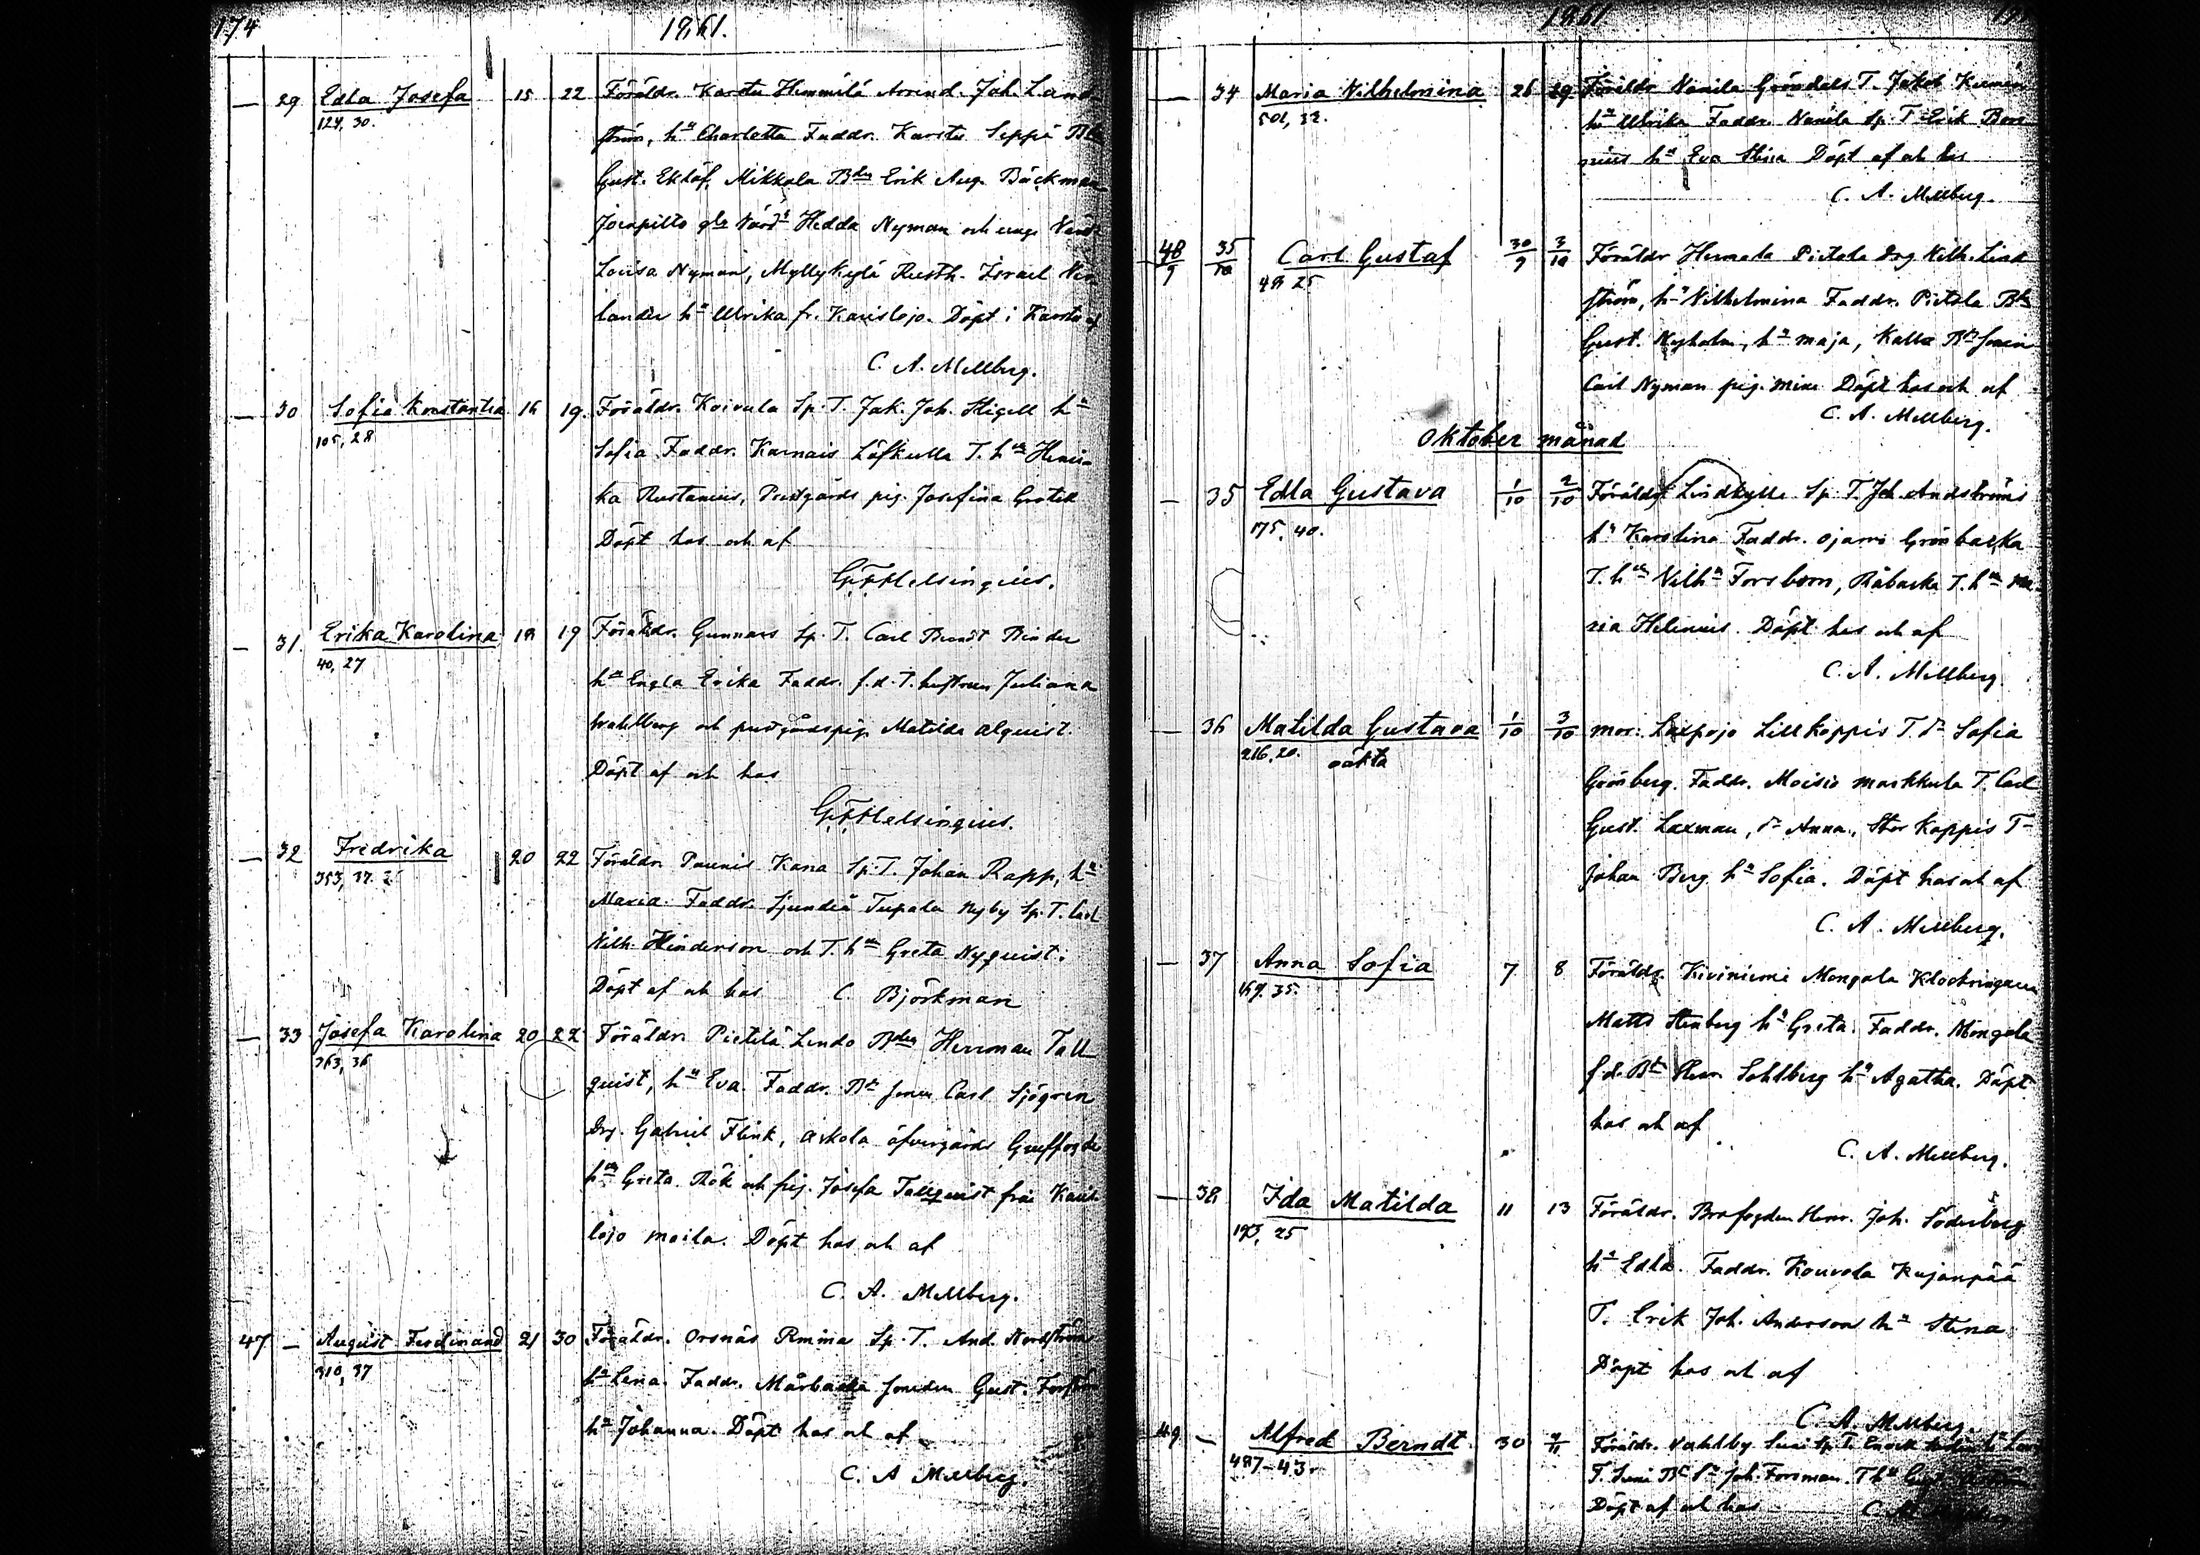 174
1861.
— 29 Edla Josefa 15 22 Föräldr. Karstu Hemmilä Arrend. Joh. Land
124, 30. ström, hu Charlotta Faddr. Karstu Seppä
Gust. Eklöf, Mikkola Bdn Erik Aug. Bäckman
Hedda Nyman och unge
Lovisa Nyman, Myllykylä Rusth. Israel
lander hu Ulrika fr. Karislojo. Döpt i Karstu af
C. A. Mellberg.
— 30 Sofia Konstantia 16 19. Föräldr. Koivula Sp. T. Jak. Joh. Stigell hu
105, 28 Sofia Faddr. Karnais Löfkulla T. hn Henri-
ka Rustenius, Prestgårds pig. Josefina Grotell
Döpt hos och af
G.F. Helsingius.
— 31. Erika Karolina 18 19 Föräldr. Gunnars Sp. T. Carl Berndt Binder
40, 27 hu Engla Erika Faddr. f.d. T. hustrun Juliana
Wahlberg och prestgårdspig. Matilda Alquist.
Döpt af och hos
G.F. Helsingius.
— 32 Fredrika 20 22 Föräldr. Paunis Kana Sp. T. Johan Rapp, hu
353, 37. Maria. Faddr. Sjundeå Tupala Nyby Sp. T. Carl
Wilh. Hinderson och T. hn Greta Nyquist.
Döpt af och hos C. Björkman
— 33 Josefa Karolina 20 22 Föräldr. Pietilä Lendo Bdn Herrman Tall-
363, 36 quist, hu Eva. Faddr. Bd sonen Carl Sjögren
Drg. Gabriel Flink, Askola öfvergårds
hn Greta Rök och pig. Josefa Tallquist från Karis-
lojo Moila. Döpt hos och af
C. A. Mellberg.
47 — August Ferdinand 21 30 Föräldr. Orsnäs Rmina Sp. T. And. Nordström
310, 37 hu Lena. Faddr. Mårbacka smeden Gust. Forsström
hu Johanna. Döpt hos och af
C. A. Mellberg.
1861
— 34 Maria Wilhelmina 26 29 Föräldr. Nanila Gröndals T. Jakob
501, 32. hu Ulrika Faddr. Nanila Sp. T. Erik
hu Eva Stina Döpt af och hos
C. A. Mellberg.
48/9 35/10 Carl Gustaf 30/9 3/10 Föräldr. Humala Pietola Drg Wilh. Lind
48 25 ström, hu Wilhelmina Faddr. Pietola Bd
Gust. Nyholm, hu Maja, Kalla Bd sonen
Carl Nyman pig. Mina Döpt hos och af
C. A. Mellberg.
Oktober månad
— 35 Edla Gustava 1/10 2/10 Föräldr. Lindkylla Sp. T. Joh. Andströms
175, 40. hu Karolina Faddr. Ojamo Grönbacka
T. hn Wilhna Forsbom, Råbacka T. hn Ma-
ria Helenius. Döpt hos och af
C. A. Mellberg.
— 36 Matilda Gustava 1/10 3/10 Mor: Laxpojo Lillkoppis T. dr Sofia
216, 20. oäkta Grönberg. Faddr. Moisio Markkula T. Carl
Gust. Laxman, dr Anna, Stor Koppis T
Johan Berg hu Sofia. Döpt hos och af
C. A. Mellberg.
— 37 Anna Sofia 7 8 Föräldr. Kiviniemi Mongola Klockringaren
169. 35. Matts Stenberg hu Greta. Faddr. Mongola
f.d. Bd Herr. Sohlberg hu Agatha. Döpt
hos och af
C. A. Mellberg.
— 38 Ida Matilda 11 13 Föräldr. Brofogden Herr. Joh. Söderberg
193, 25 hu Edla. Faddr. Kouvola Kujanpää
T. Erik Joh. Anderson hu Stina
Döpt hos och af
C. A. Mellberg.
49 — Alfred Berndt. 30 Föräldr. Vahlby Suni Sp. T.
487-43. T. Suni Joh. Forsman. T. hu
Döpt af och hos